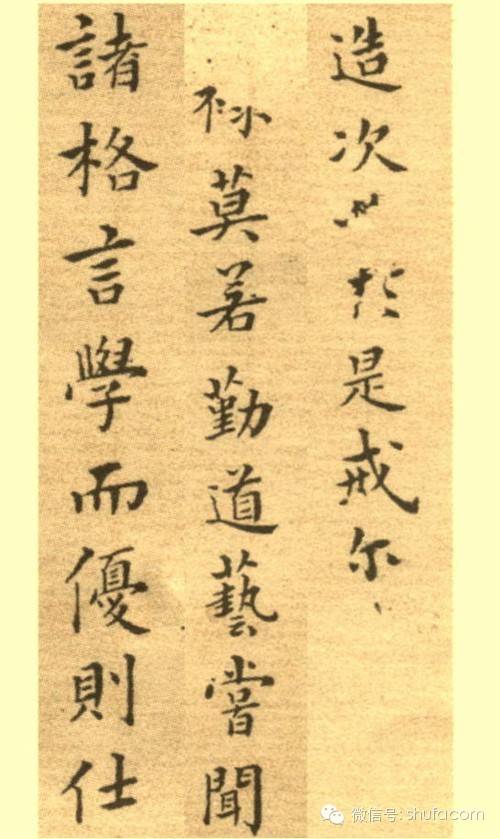 造次必於是戒尔
莫若勤道藝嘗聞
諸格言學而優則仕
微信号: shufacom